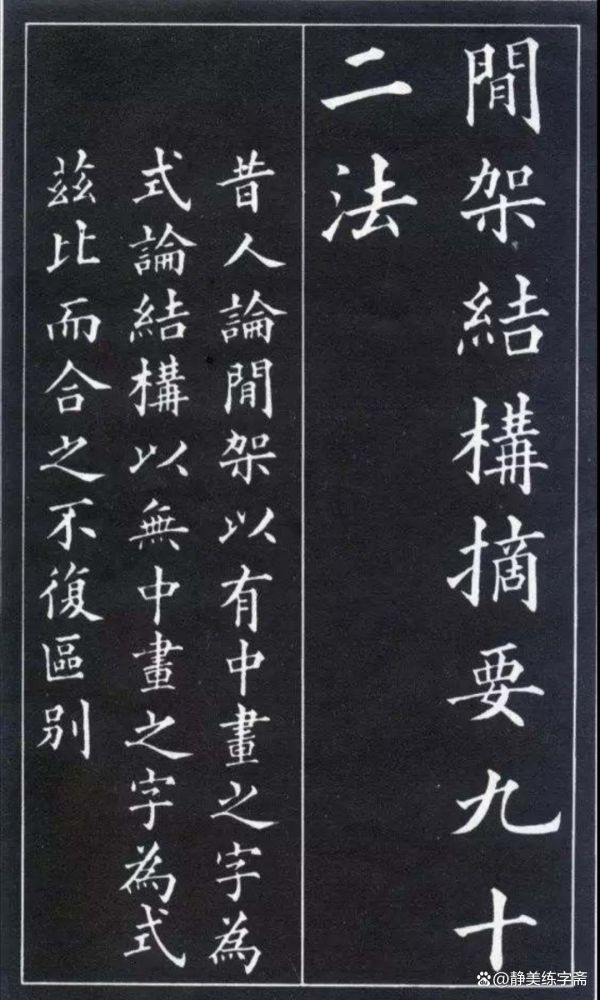 閒架結構摘要九十
二法
昔人論閒架以有中畫之字為
式論結構以無中畫之字為式
茲比而合之不復區別
@静美练字斋